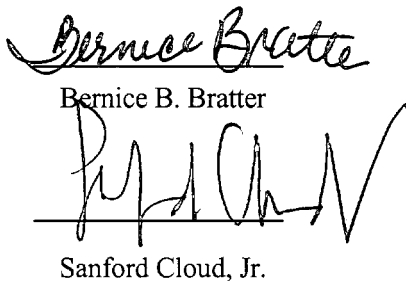 Bernice Bratte
Bernice B. Bratter
Sanford Cloud, Jr.